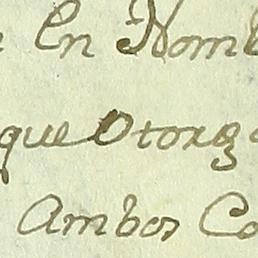 En Nomb
que Otorg
Ambos Co